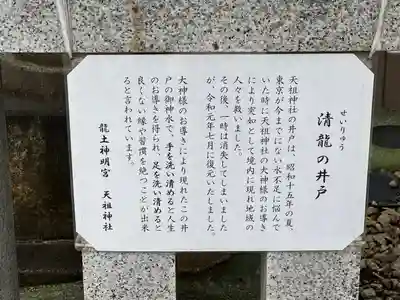 せいりゅう
清龍の井戸
天祖神社の井戸は、昭和十五年の夏、
東京が今までにない水不足に悩んで
いた時に天祖神社の大神様のお導き
により突如として境内に現れ地域の
人々を救いました。
その後、一時は消失してしまいました
が、令和元年七月に復元いたしました。
大神様のお導きにより現れたこの井
戸の御神水で、手を洗い清めると人生
のお導きを得られ、足を洗い清めると
良くない縁や習慣を絶つことが出来
ると言われています。
龍土神明宮 天祖神社